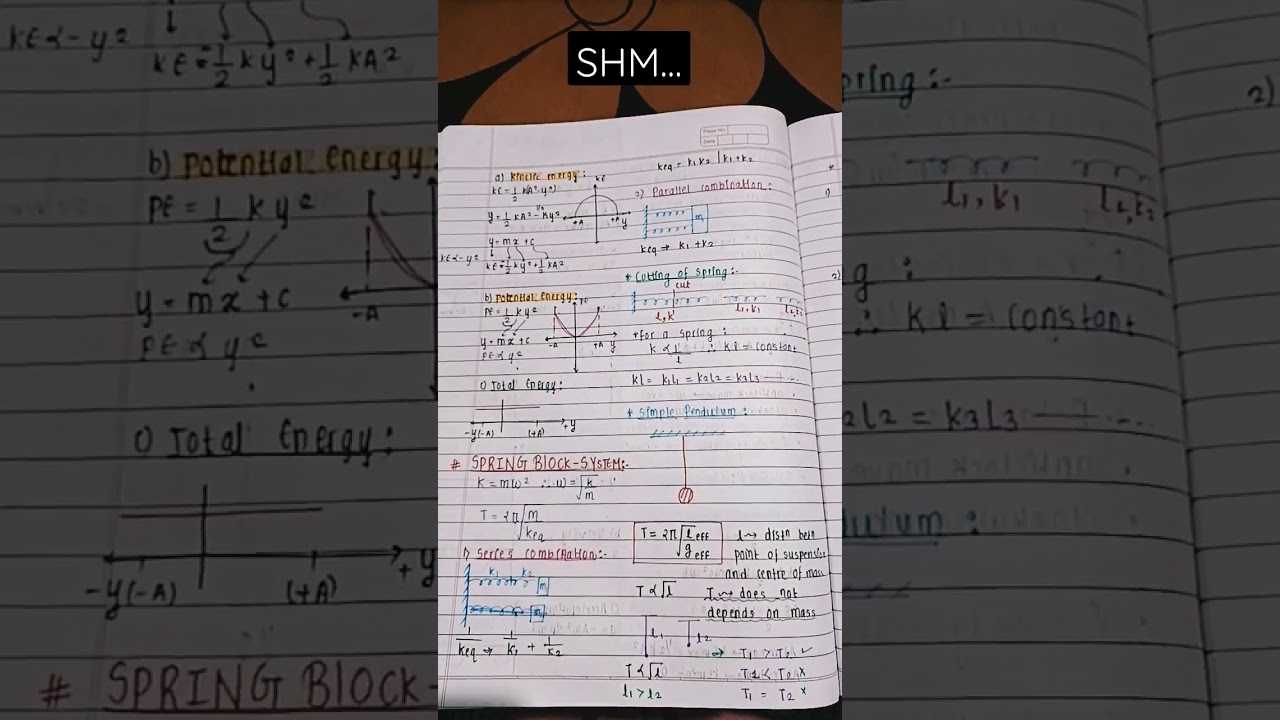 SHM...
Page No.
Date
a) Kinetic energy:
KE = 1/2 K(A² y²)
KE
y = 1/2 KA² - Ky²
+A
+A
y
y = mx + c
KE ∝ - y²
KE = 1/2 Ky² + 1/2 KA²
b) Potential energy:
PE = 1/2 K y²
PE
y = mx + c
-A
+A
y
PE ∝ y²
c) Total Energy:
-y(-A)
(+A)
+y
# SPRING BLOCK-SYSTEM:-
K = mω² ∴ ω = √k/m
T = 2π √m/keq
1) Series combination:-
k1
k2
m
m
1/keq ⇝ 1/k1 + 1/k2
keq = k1k2 / k1+k2
2) Parallel combination:
m
keq ⇝ k1 + k2
* Cutting of spring:-
cut
l, K
l1, k1
l2, k2
+for a spring:
K ∝ 1/l ∴ Kl = constant
Kl = k1l1 = k2l2 = k3l3 ----
* Simple Pendulum:
T = 2π √l eff / g eff
l ⇝ distn betn
point of suspension
and centre of mass
T ∝ √l
T ⇝ does not
depends on mass
l1
l2
T1 > T2 ✓
T ∝ √l
l1 > l2
T1 = T2 ×